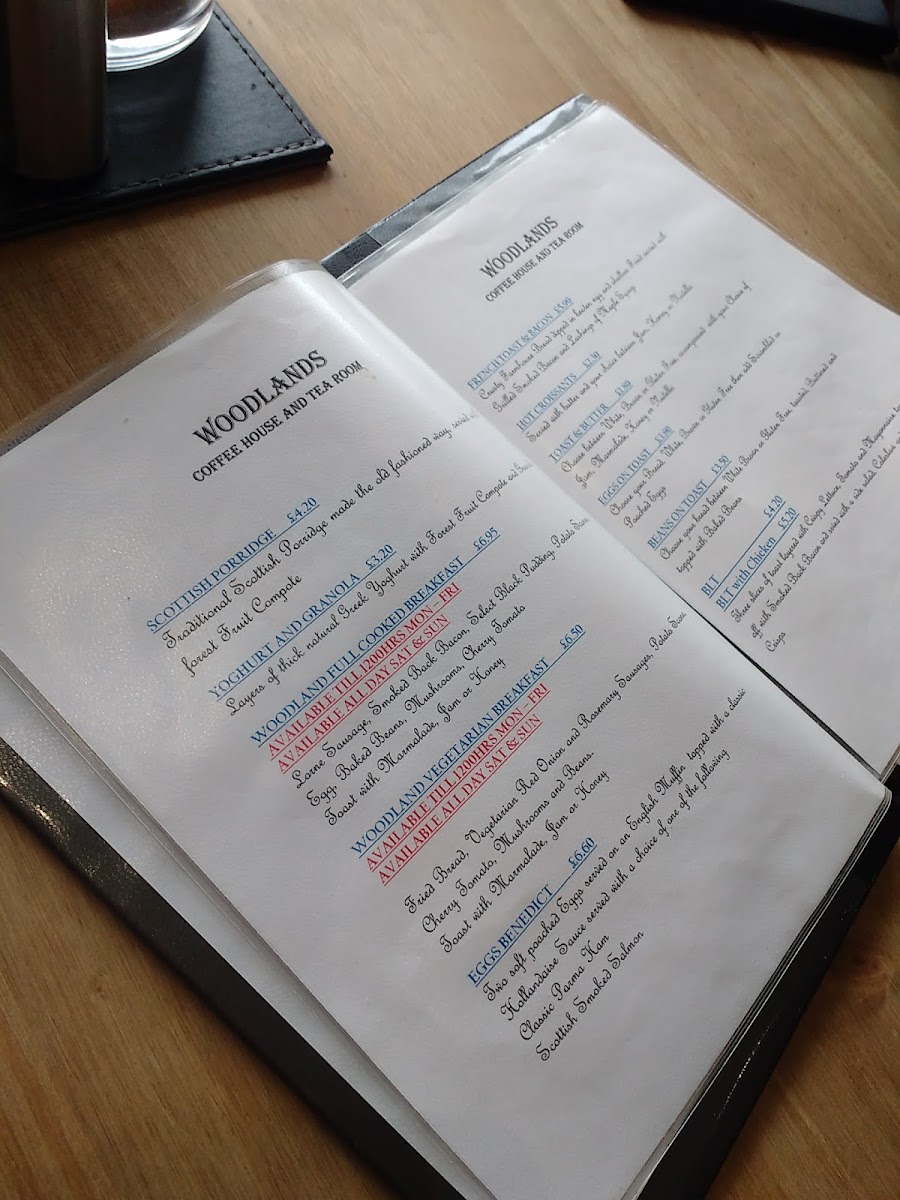 WOODLANDS
COFFEE HOUSE AND TEA ROOM
SCOTTISH PORRIDGE £4.20
Traditional Scottish Porridge made the old fashioned way,
forest Fruit Compote
YOGHURT AND GRANOLA £3.20
Layers of thick natural Greek Yoghurt with Forest Fruit Compote and
WOODLAND FULL COOKED BREAKFAST £6.95
AVAILABLE TILL 1200HRS MON – FRI
AVAILABLE ALL DAY SAT & SUN
Lorne Sausage, Smoked Back Bacon, Select Black Pudding, Potato Scone
Egg, Baked Beans, Mushrooms, Cherry Tomato
Toast with Marmalade, Jam or Honey
WOODLAND VEGETARIAN BREAKFAST £6.50
AVAILABLE TILL 1200HRS MON – FRI
AVAILABLE ALL DAY SAT & SUN
Fried Bread, Vegetarian Red Onion and Rosemary Sausages, Potato
Cherry Tomato, Mushrooms and Beans.
Toast with Marmalade, Jam or Honey
EGGS BENEDICT £6.60
Two soft poached Eggs served on an English Muffin topped with a classic
Hollandaise Sauce served with a choice of one of the following
Classic Parma Ham
Scottish Smoked Salmon
WOODLANDS
COFFEE HOUSE AND TEA ROOM
FRENCH TOAST & BACON £5.90
Farmhouse Bread dipped in egg and shallow fried served with
Grilled Smoked Bacon and Lashings of Maple Syrup
HOT CROISSANTS £2.30
Served with butter and your choice between Jam, Honey or Nutella
TOAST & BUTTER £1.80
Choose between White, Brown or Gluten Free accompanied with your Choice of
Jam, Marmalade, Honey or Nutella
EGGS ON TOAST £3.80
Choose your Bread, White, Brown or Gluten Free then add Scrambled or
Poached Eggs
BEANS ON TOAST £3.50
Choose your bread between White Brown or Gluten Free toasted, Buttered and
topped with Baked Beans
BLT £4.20
BLT with Chicken £5.20
Three slices of toast layered with Crispy Lettuce, Tomato and Mayonnaise
off with Smoked Back Bacon and served with a side salad, Coleslaw
Crisps